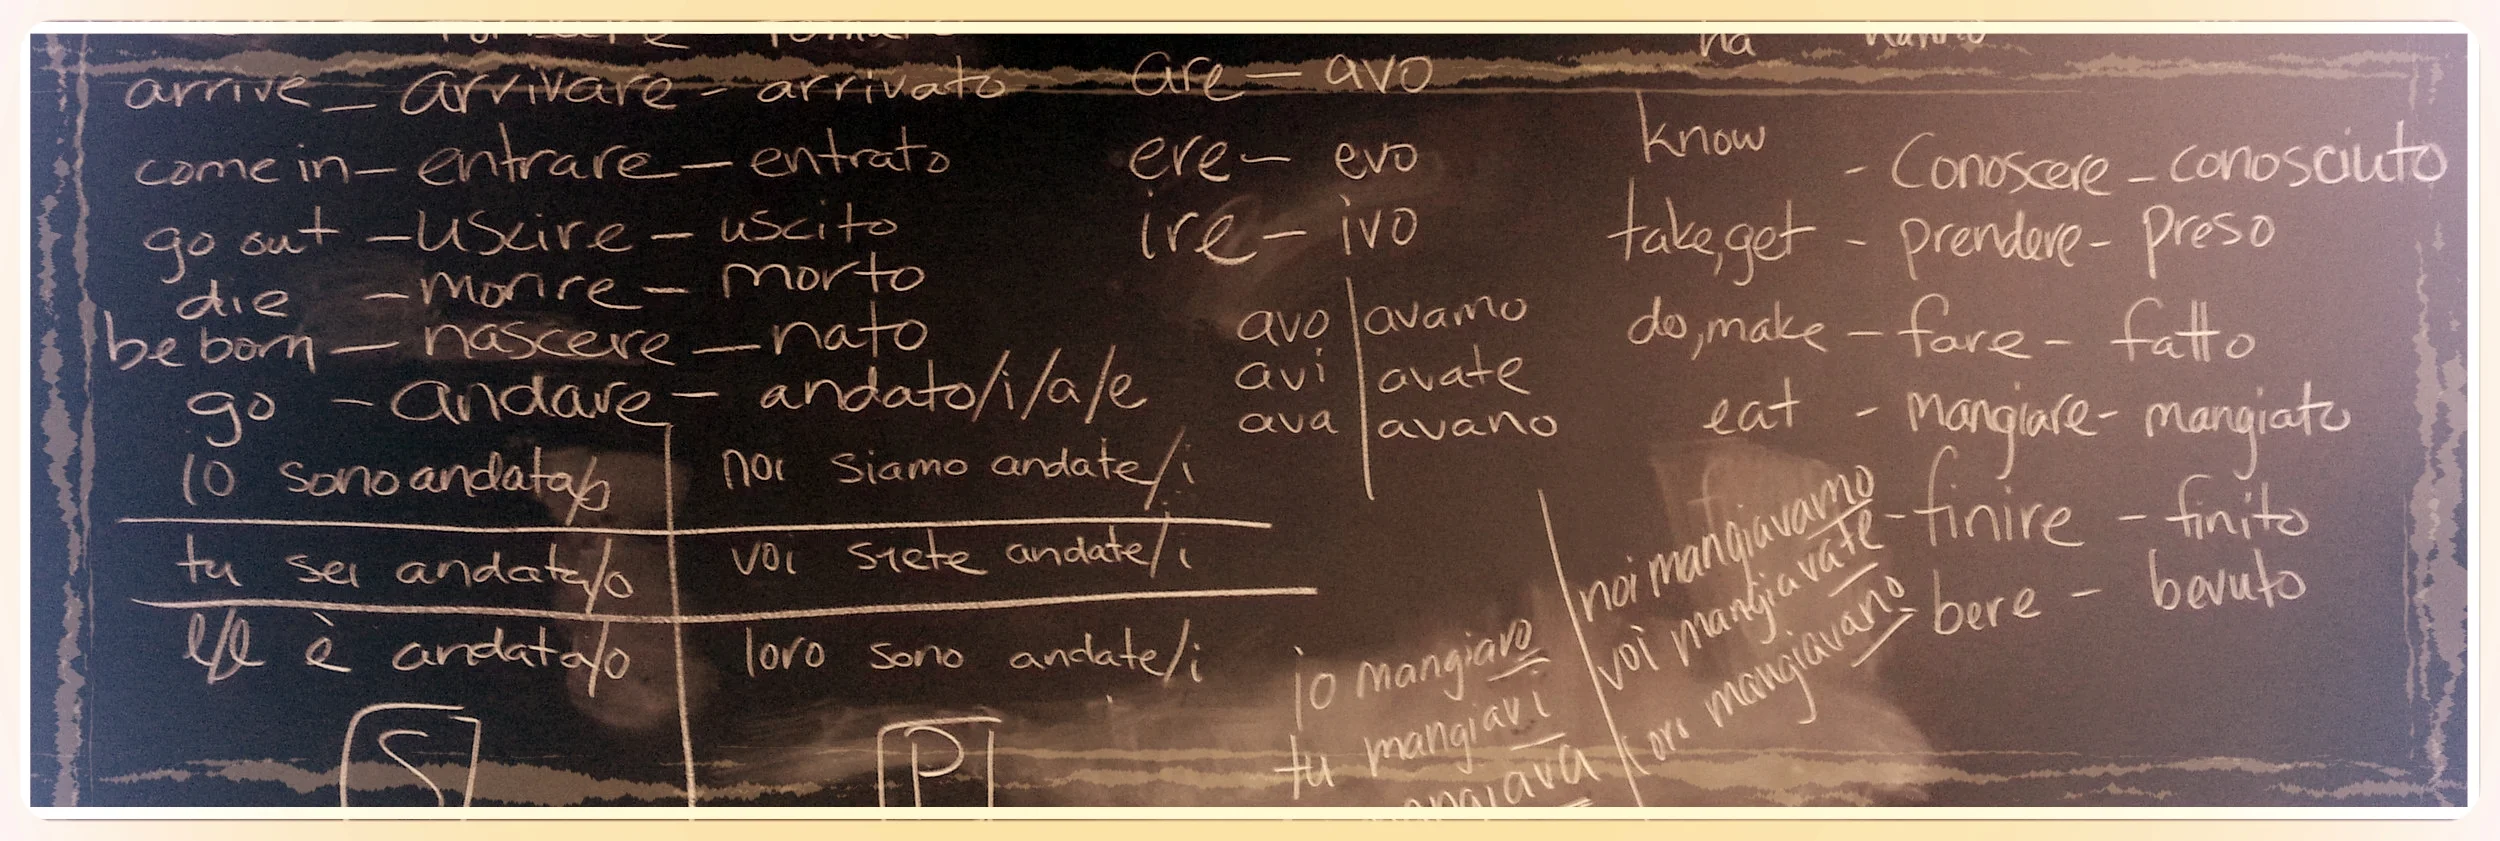 tornare
ha hanno
arrive - arrivare - arrivato
come in - entrare - entrato
go out - uscire - uscito
die - morire - morto
be born - nascere - nato
go - andare - andato/i/a/e
io sono andata/o
noi siamo andate/i
tu sei andata/o
voi siete andate/i
l/l è andata/o
loro sono andate/i
S
P
are - avo
ere - evo
ire - ivo
avo | avamo
avi | avate
ava | avano
io mangiavo
tu mangiavi
mangiava
noi mangiavamo
voi mangiavate
loro mangiavano
know - Conoscere - conosciuto
take, get - prendere - preso
do, make - fare - fatto
eat - mangiare - mangiato
- finire - finito
- bere - bevuto